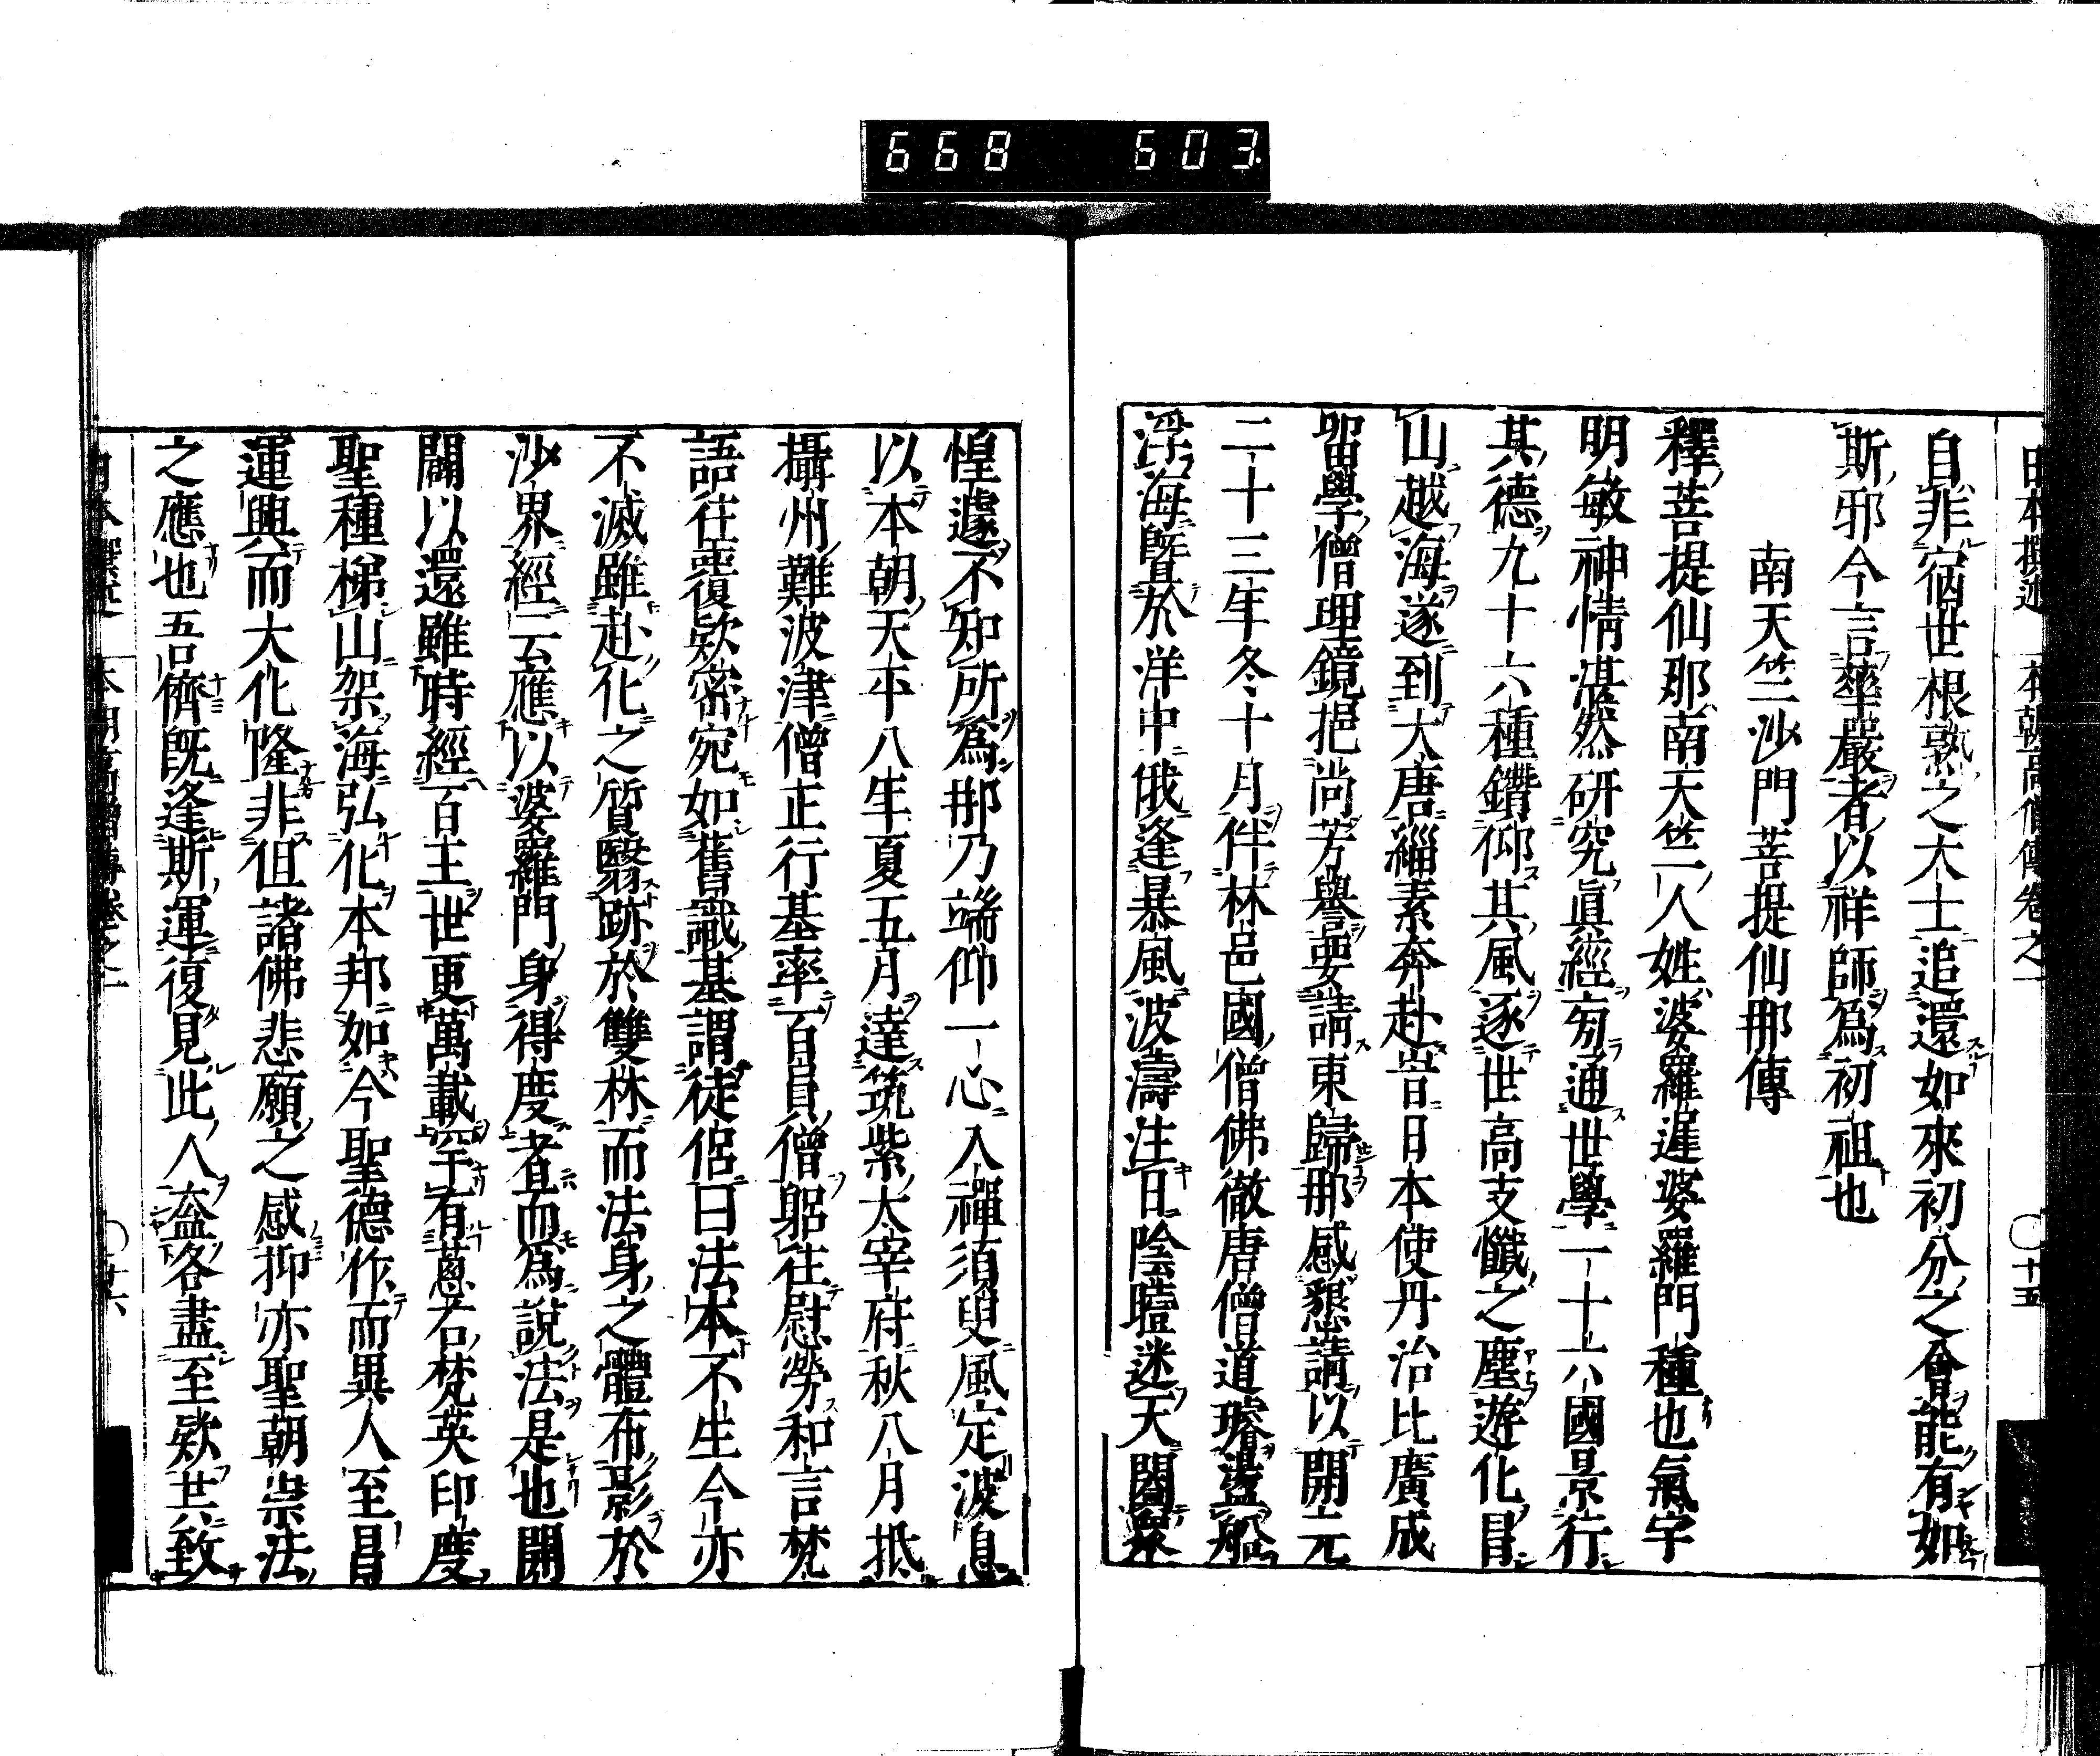 668 603
日本撰述 本朝高僧傳卷之一 〇十五
自非宿世根熟之大士追還如來初分之會能有如
斯邪今言華嚴者以祥師爲初祖也
南天竺沙門菩提仙那傳
釋菩提仙那南天竺人姓婆羅遲婆羅門種也氣宇
明敏神情湛然研究眞經旁通世學一十六國景行
其德九十六種鑽仰其風逐世高支懺之塵遊化冒
山越海遂到大唐緇素奔赴當日本使丹治比廣成
留學僧理鏡挹尚芳譽要請東歸那感懇請以開元
二十三年冬十月伴林邑國僧佛徹唐僧道璿盪船
浮海曁於洋中俄逢暴風波濤注日陰曀迷天闔衆
惶遽不知所爲那乃端仰一心入禪須臾風定波息
以本朝天平八年夏五月達筑紫大宰府秋八月抵
攝州難波津僧正行基率百員僧躬往慰勞和言梵
語往覆欵密宛如舊識基謂徒侶曰法本不生今亦
不滅雖赴化之質翳跡於雙林而法身之體布影於
沙界經云應以婆羅門身得度者而爲說法是也開
闢以還雖時經百王世更萬載罕有蔥右梵英印度
聖種梯山架海弘化本邦如今聖德作而異人至昌
運興而大化隆非但諸佛悲願之感抑亦聖朝崇法
之應也吾儕旣逢斯運復見此人盍各盡至欵共致